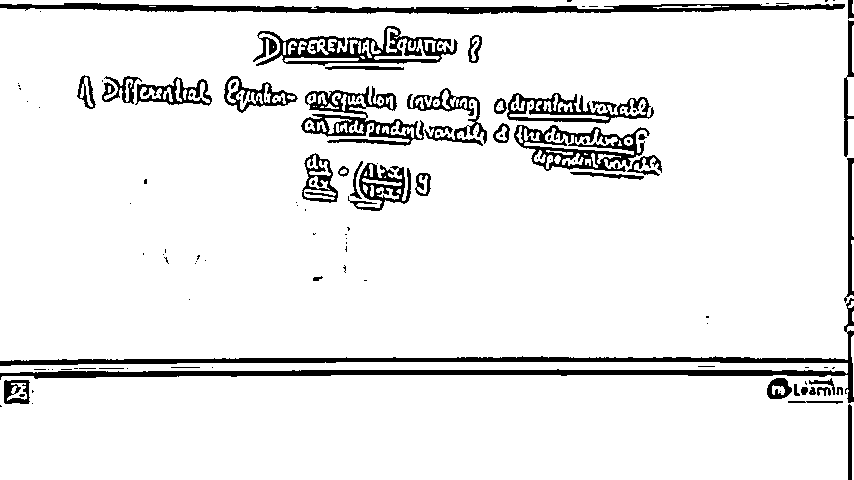 DIFFERENTIAL EQUATION ?
A Differential Equation- an equation involving a dependent variable
an independent variable & the derivative of
dependent variable
dy/dx = (1+x/
) y
Learning